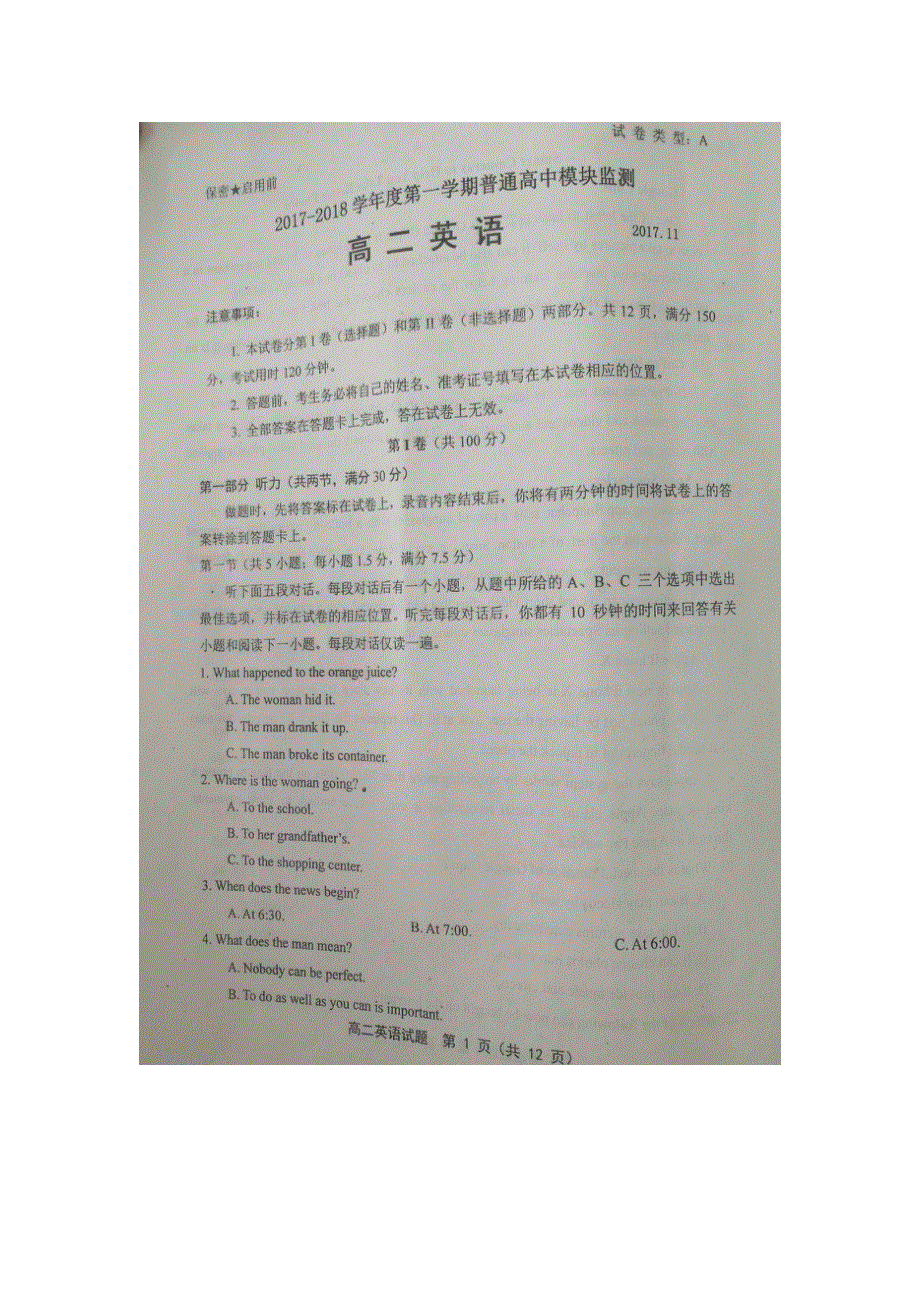 试 卷 类 型：A
保密★启用前
2017-2018 学年度第一学期普通高中模块监测
高 二 英 语
2017.11
注意事项：
1. 本试卷分第 I 卷（选择题）和第 II 卷（非选择题）两部分。共 12 页，满分 150
分，考试用时 120 分钟。
2. 答题前，考生务必将自己的姓名、准考证号填写在本试卷相应的位置。
3. 全部答案在答题卡上完成，答在试卷上无效。
第 I 卷（共 100 分）
第一部分 听力（共两节，满分 30 分）
做题时，先将答案标在试卷上，录音内容结束后，你将有两分钟的时间将试卷上的答
案转涂到答题卡上。
第一节（共 5 小题；每小题 1.5 分，满分 7.5 分）
听下面五段对话。每段对话后有一个小题，从题中所给的 A、B、C 三个选项中选出
最佳选项，并标在试卷的相应位置。听完每段对话后，你都有 10 秒钟的时间来回答有关
小题和阅读下一小题。每段对话仅读一遍。
1. What happened to the orange juice?
A. The woman hid it.
B. The man drank it up.
C. The man broke its container.
2. Where is the woman going?
A. To the school.
B. To her grandfather's.
C. To the shopping center.
3. When does the news begin?
A. At 6:30.
B. At 7:00.
C. At 6:00.
4. What does the man mean?
A. Nobody can be perfect.
B. To do as well as you can is important.
高二英语试题 第 1 页（共 12 页）